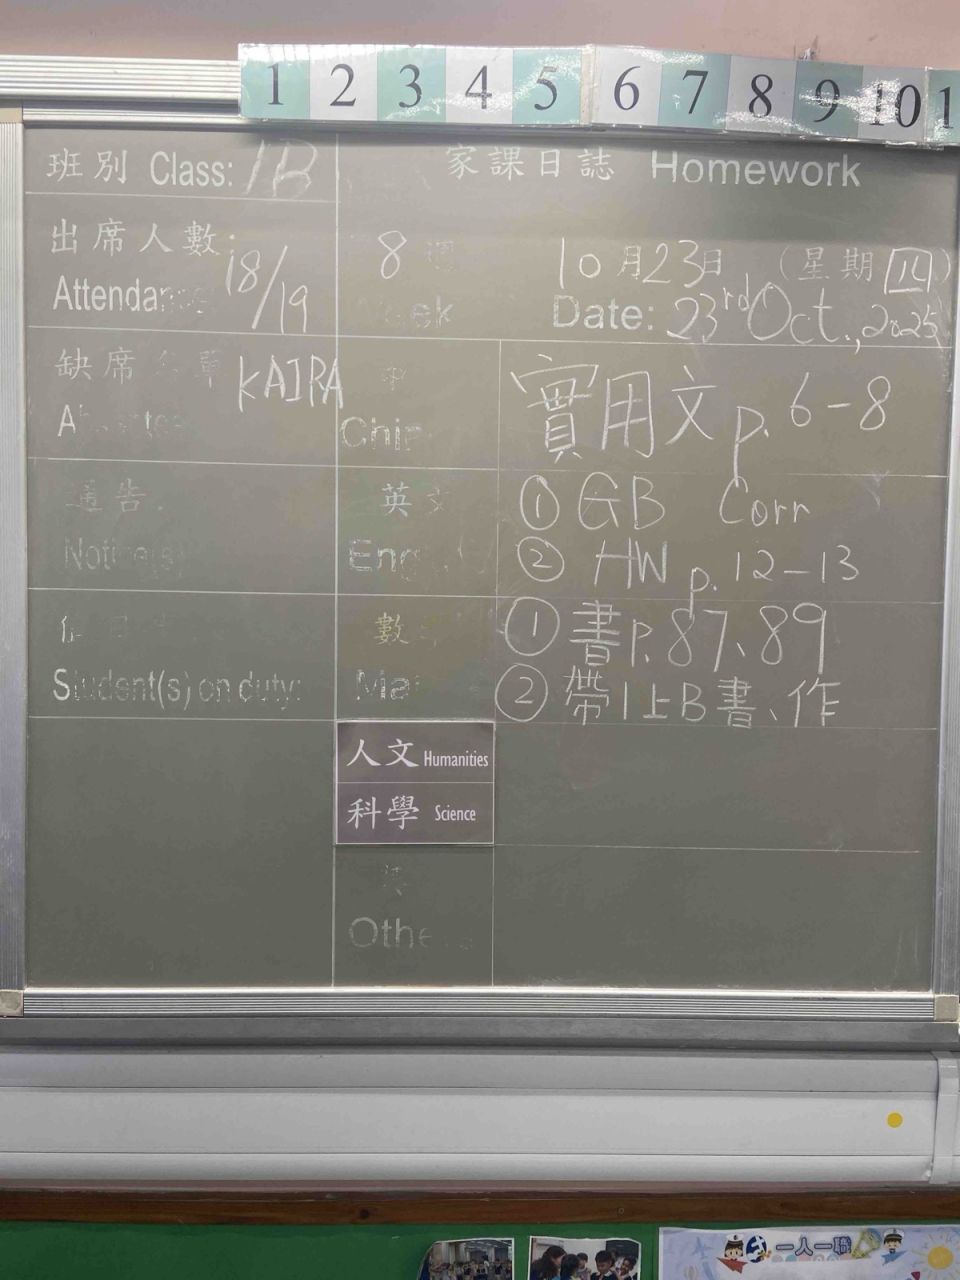 1 2 3 4 5 6 7 8 9 10 1
班別 Class: 1B
家課日誌 Homework
出席人數:
18/19
8 週
10月23日 (星期四)
Week
Date: 23rd Oct., 2025
缺席名單
KAIRA
實用文 p. 6-8
通告
Notice(s)
英文
① GB Corr
② HW p. 12-13
數
① 書P.87、89
Student(s) on duty:
② 帶1上B書、作
人文 Humanities
科學 Science
一人一職